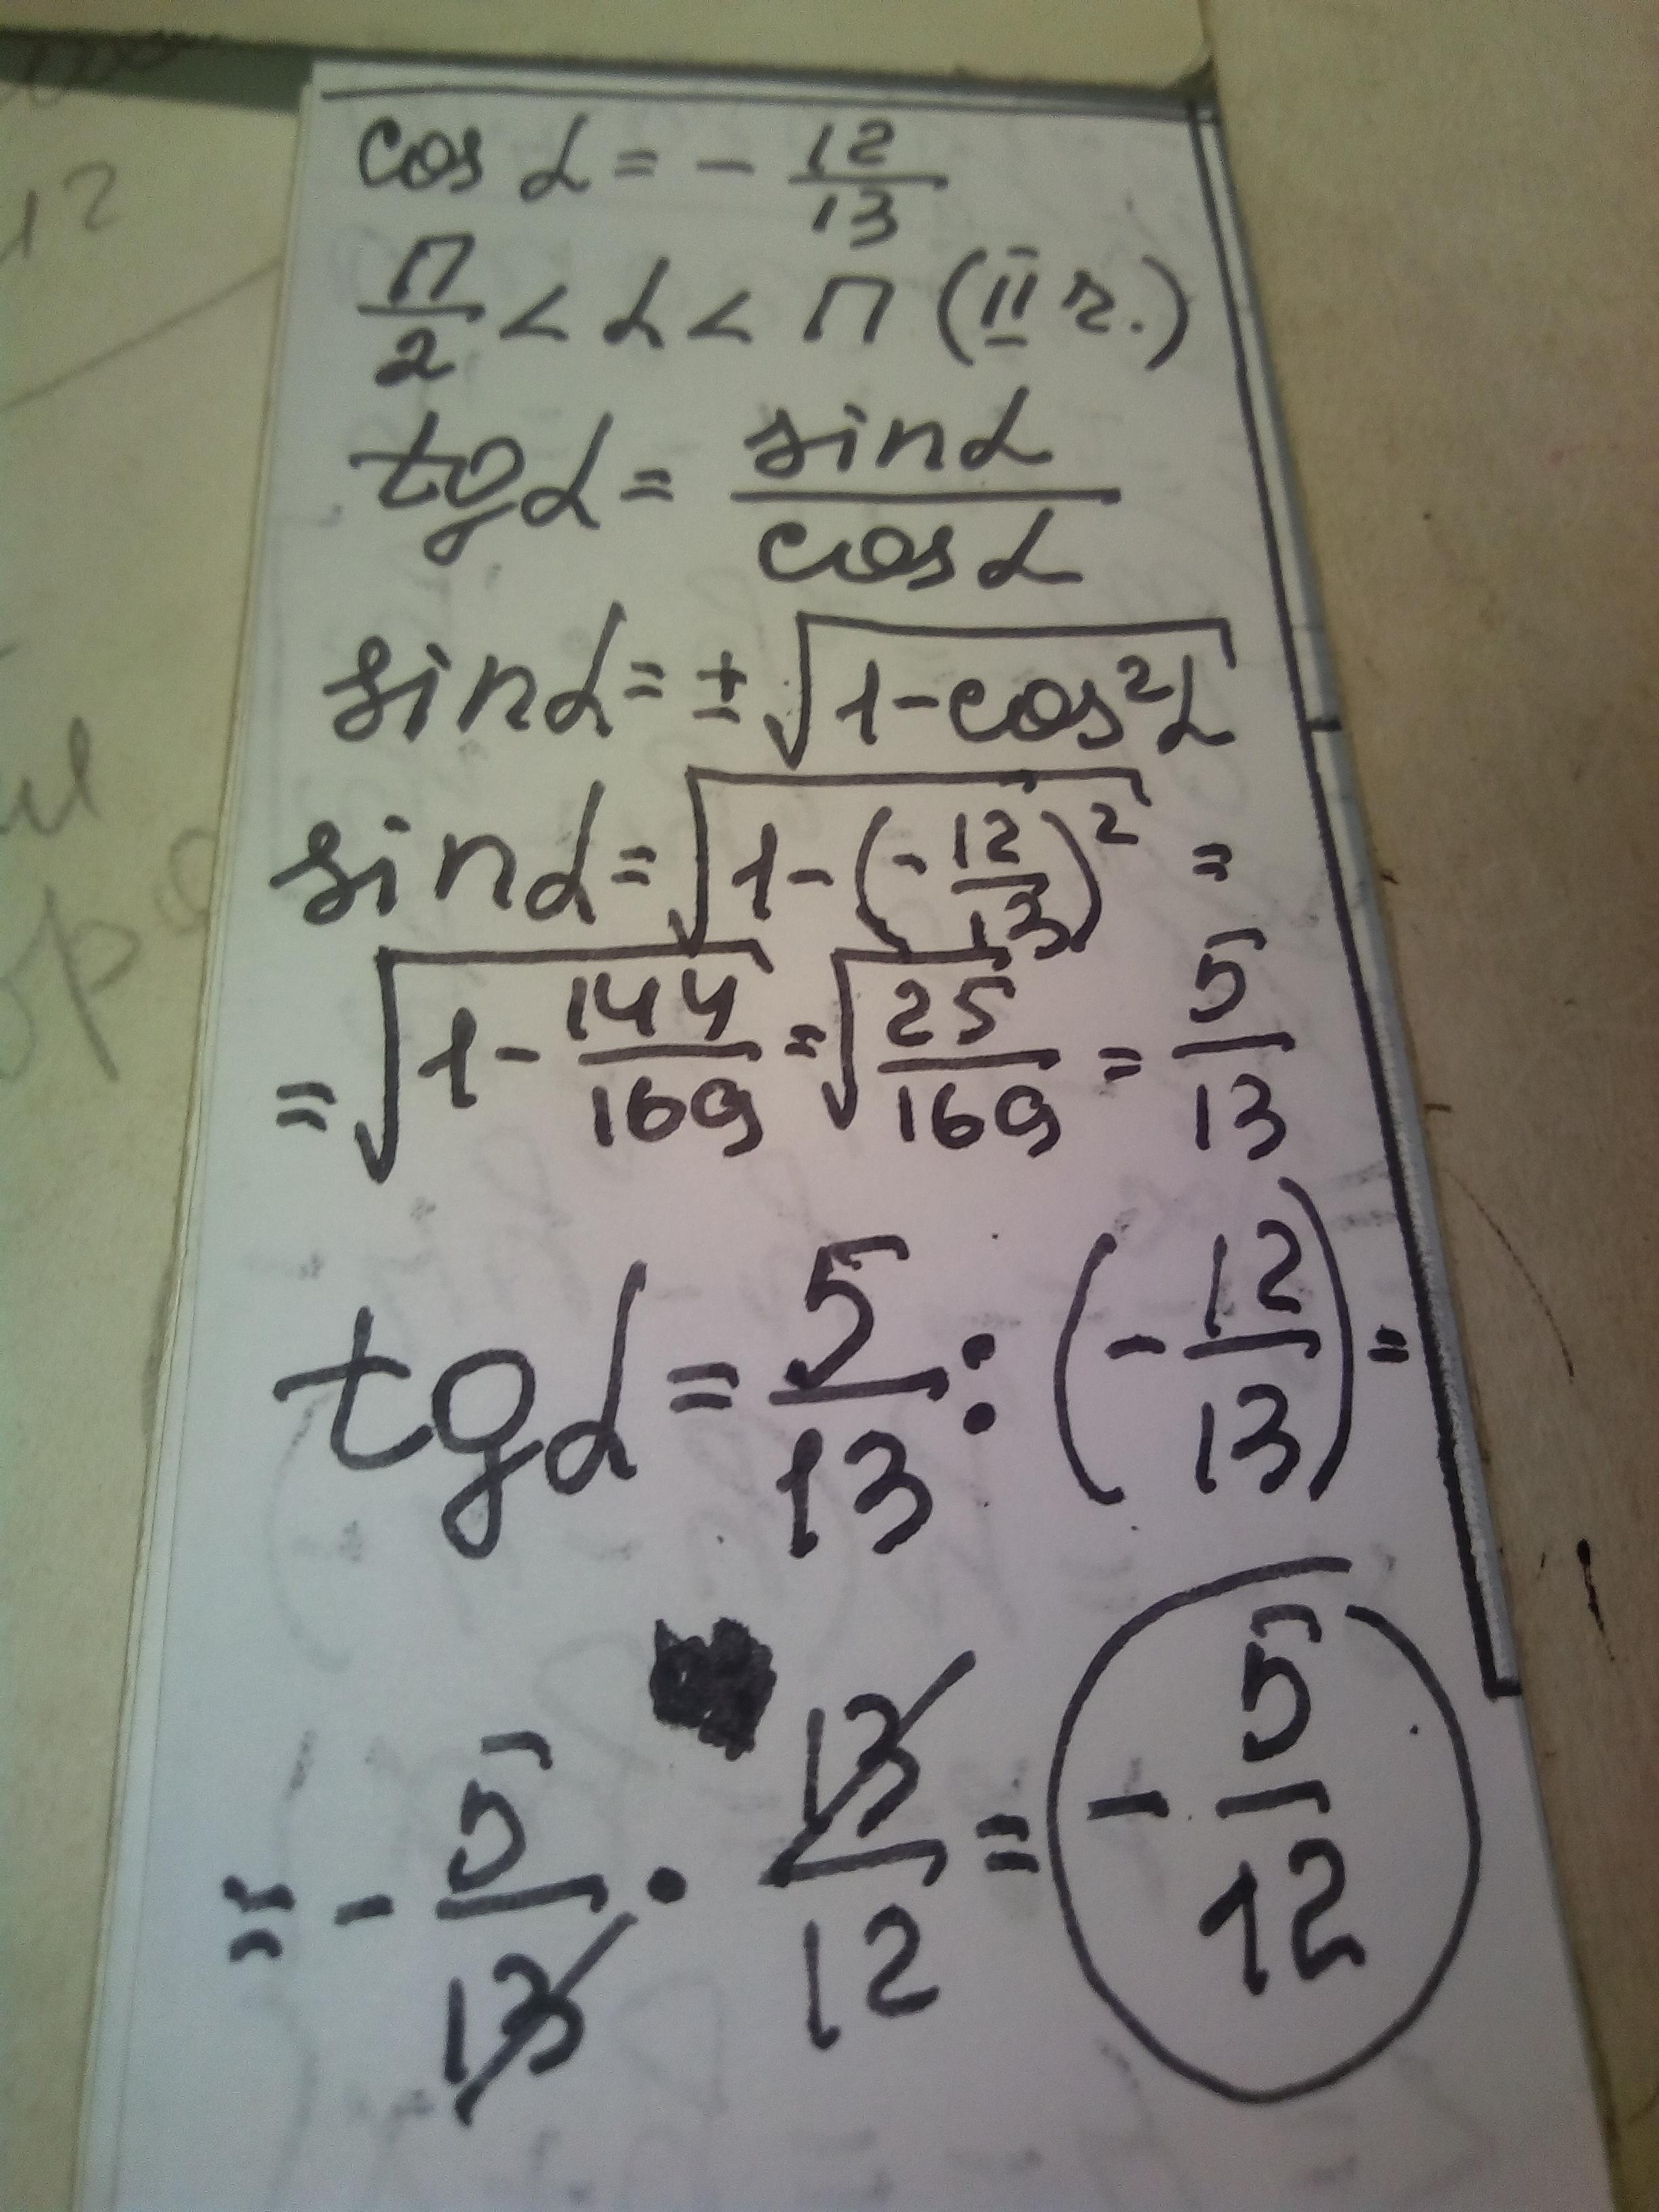 cos α = - 12/13
π/2 < α < π (II г.)
tg α = sin α / cos α
sin α = ± √(1 - cos² α)
sin α = √(1 - (- 12/13)²) =
= √(1 - 144/169) = √(25/169) = 5/13
tg α = 5/13 : (- 12/13) =
= - 5/13 · 13/12 = - 5/12